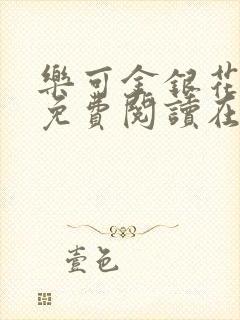 樂可金銀花
免費閱讀在
壹色